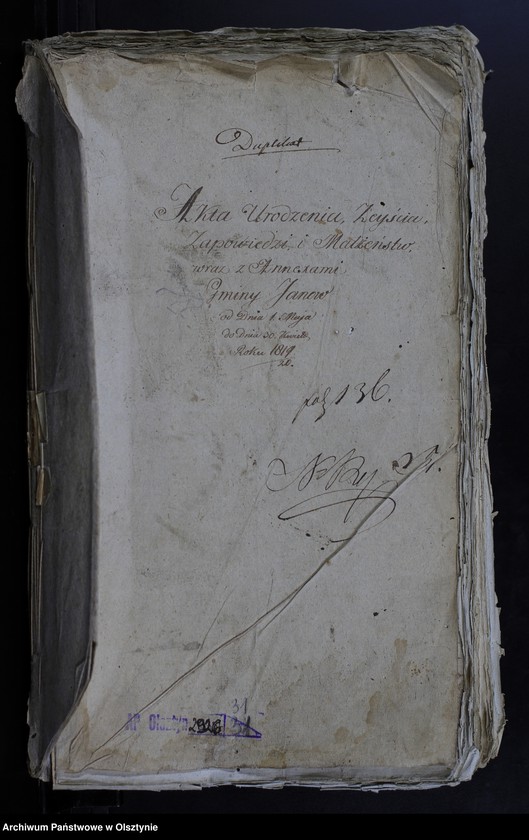 Duplikat
Akta Urodzenia, Zeyścia,
Zapowiedzi, i Małżeństw.
wraz z Annexami
Gminy Janow
od Dnia 1 Maja
do Dnia 30. Kwiet.
Roku 1819
20.
136.
31
AP Olsztyn
Archiwum Państwowe w Olsztynie